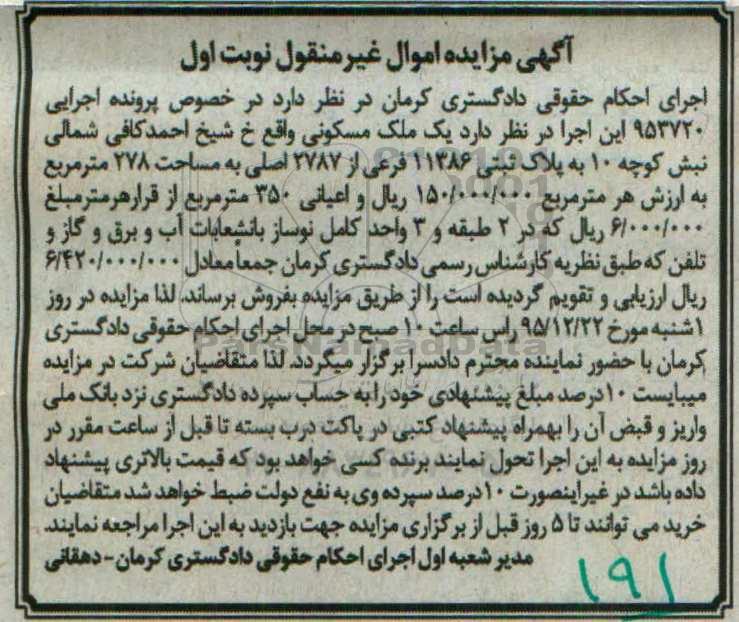 آگهی مزایده اموال غیر منقول نوبت اول
اجرای احکام حقوقی دادگستری کرمان در نظر دارد در خصوص پرونده اجرایی
۹۵۳۷۲۰ این اجرا در نظر دارد یک ملک مسکونی واقع خ شیخ احمدکافی شمالی
نبش کوچه ۱۰ به پلاک ثبتی ۱۱۳۸۶ فرعی از ۲۷۸۷ اصلی به مساحت ۲۷۸ مترمربع
به ارزش هر مترمربع ۱۵۰/۰۰۰/۰۰۰ ریال و اعیانی ۳۵۰ مترمربع از قرار هر مترمبلغ
۶/۰۰۰/۰۰۰ ریال که در ۲ طبقه و ۳ واحد کامل نوساز باانشعابات آب و برق و گاز و
تلفن که طبق نظریه کارشناس رسمی دادگستری کرمان جمعاً معادل ۶/۴۲۰/۰۰۰/۰۰۰
ریال ارزیابی و تقویم گردیده است را از طریق مزایده بفروش برساند. لذا مزایده در روز
۱شنبه مورخ ۹۵/۱۲/۲۲ راس ساعت ۱۰ صبح در محل اجرای احکام حقوقی دادگستری
کرمان با حضور نماینده محترم دادسرا برگزار میگردد. لذا متقاضیان شرکت در مزایده
میبایست ۱۰درصد مبلغ پیشنهادی خود را به حساب سپرده دادگستری نزد بانک ملی
واریز و قبض آن را بهمراه پیشنهاد کتبی در پاکت درب بسته تا قبل از ساعت مقرر در
روز مزایده به این اجرا تحول نمایند برنده کسی خواهد بود که قیمت بالاتری پیشنهاد
داده باشد در غیر اینصورت ۱۰درصد سپرده وی به نفع دولت ضبط خواهد شد متقاضیان
خرید می توانند تا ۵ روز قبل از برگزاری مزایده جهت بازدید به این اجرا مراجعه نمایند.
مدیر شعبه اول اجرای احکام حقوقی دادگستری کرمان - دهقانی
۱۹۱
ParsNamadData